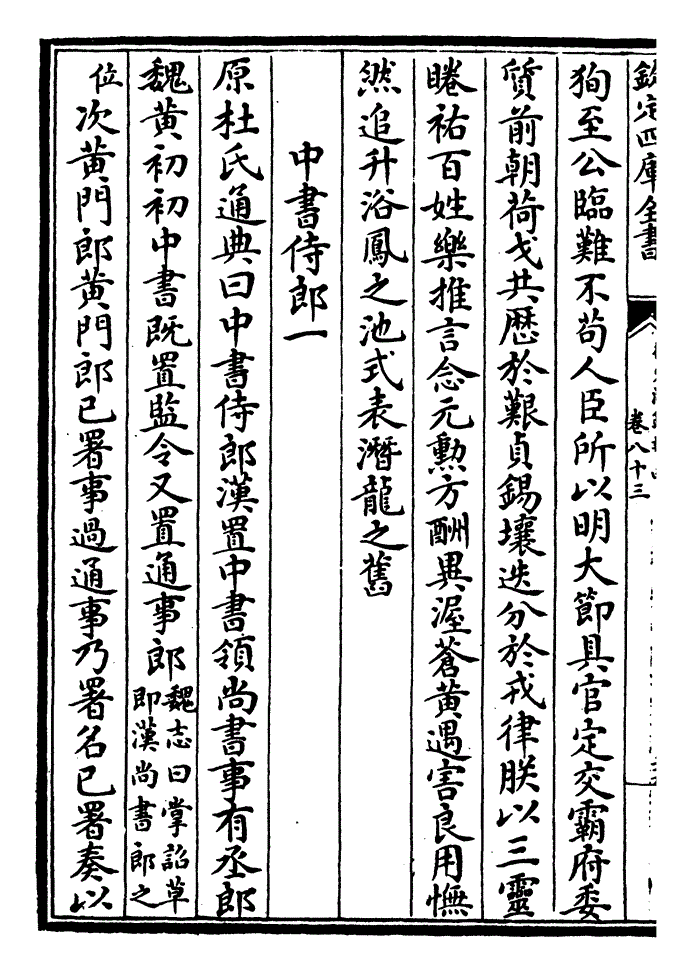 欽定四庫全書
卷八十三
狥至公臨難不苟人臣所以明大節具官定交霸府委
質前朝荷戈共歴於艱貞錫壤迭分於戎律朕以三靈
睠祐百姓樂推言念元勲方酬異渥蒼黃遇害良用憮
然追升浴鳳之池式表潛龍之舊
中書侍郎一
原杜氏通典曰中書侍郎漢置中書領尚書事有丞郎
魏黄初初中書既置監令又置通事郎魏志曰掌詔草
即漢尚書郎之
位次黄門郎黄門郎已署事過通事乃署名已署奏以